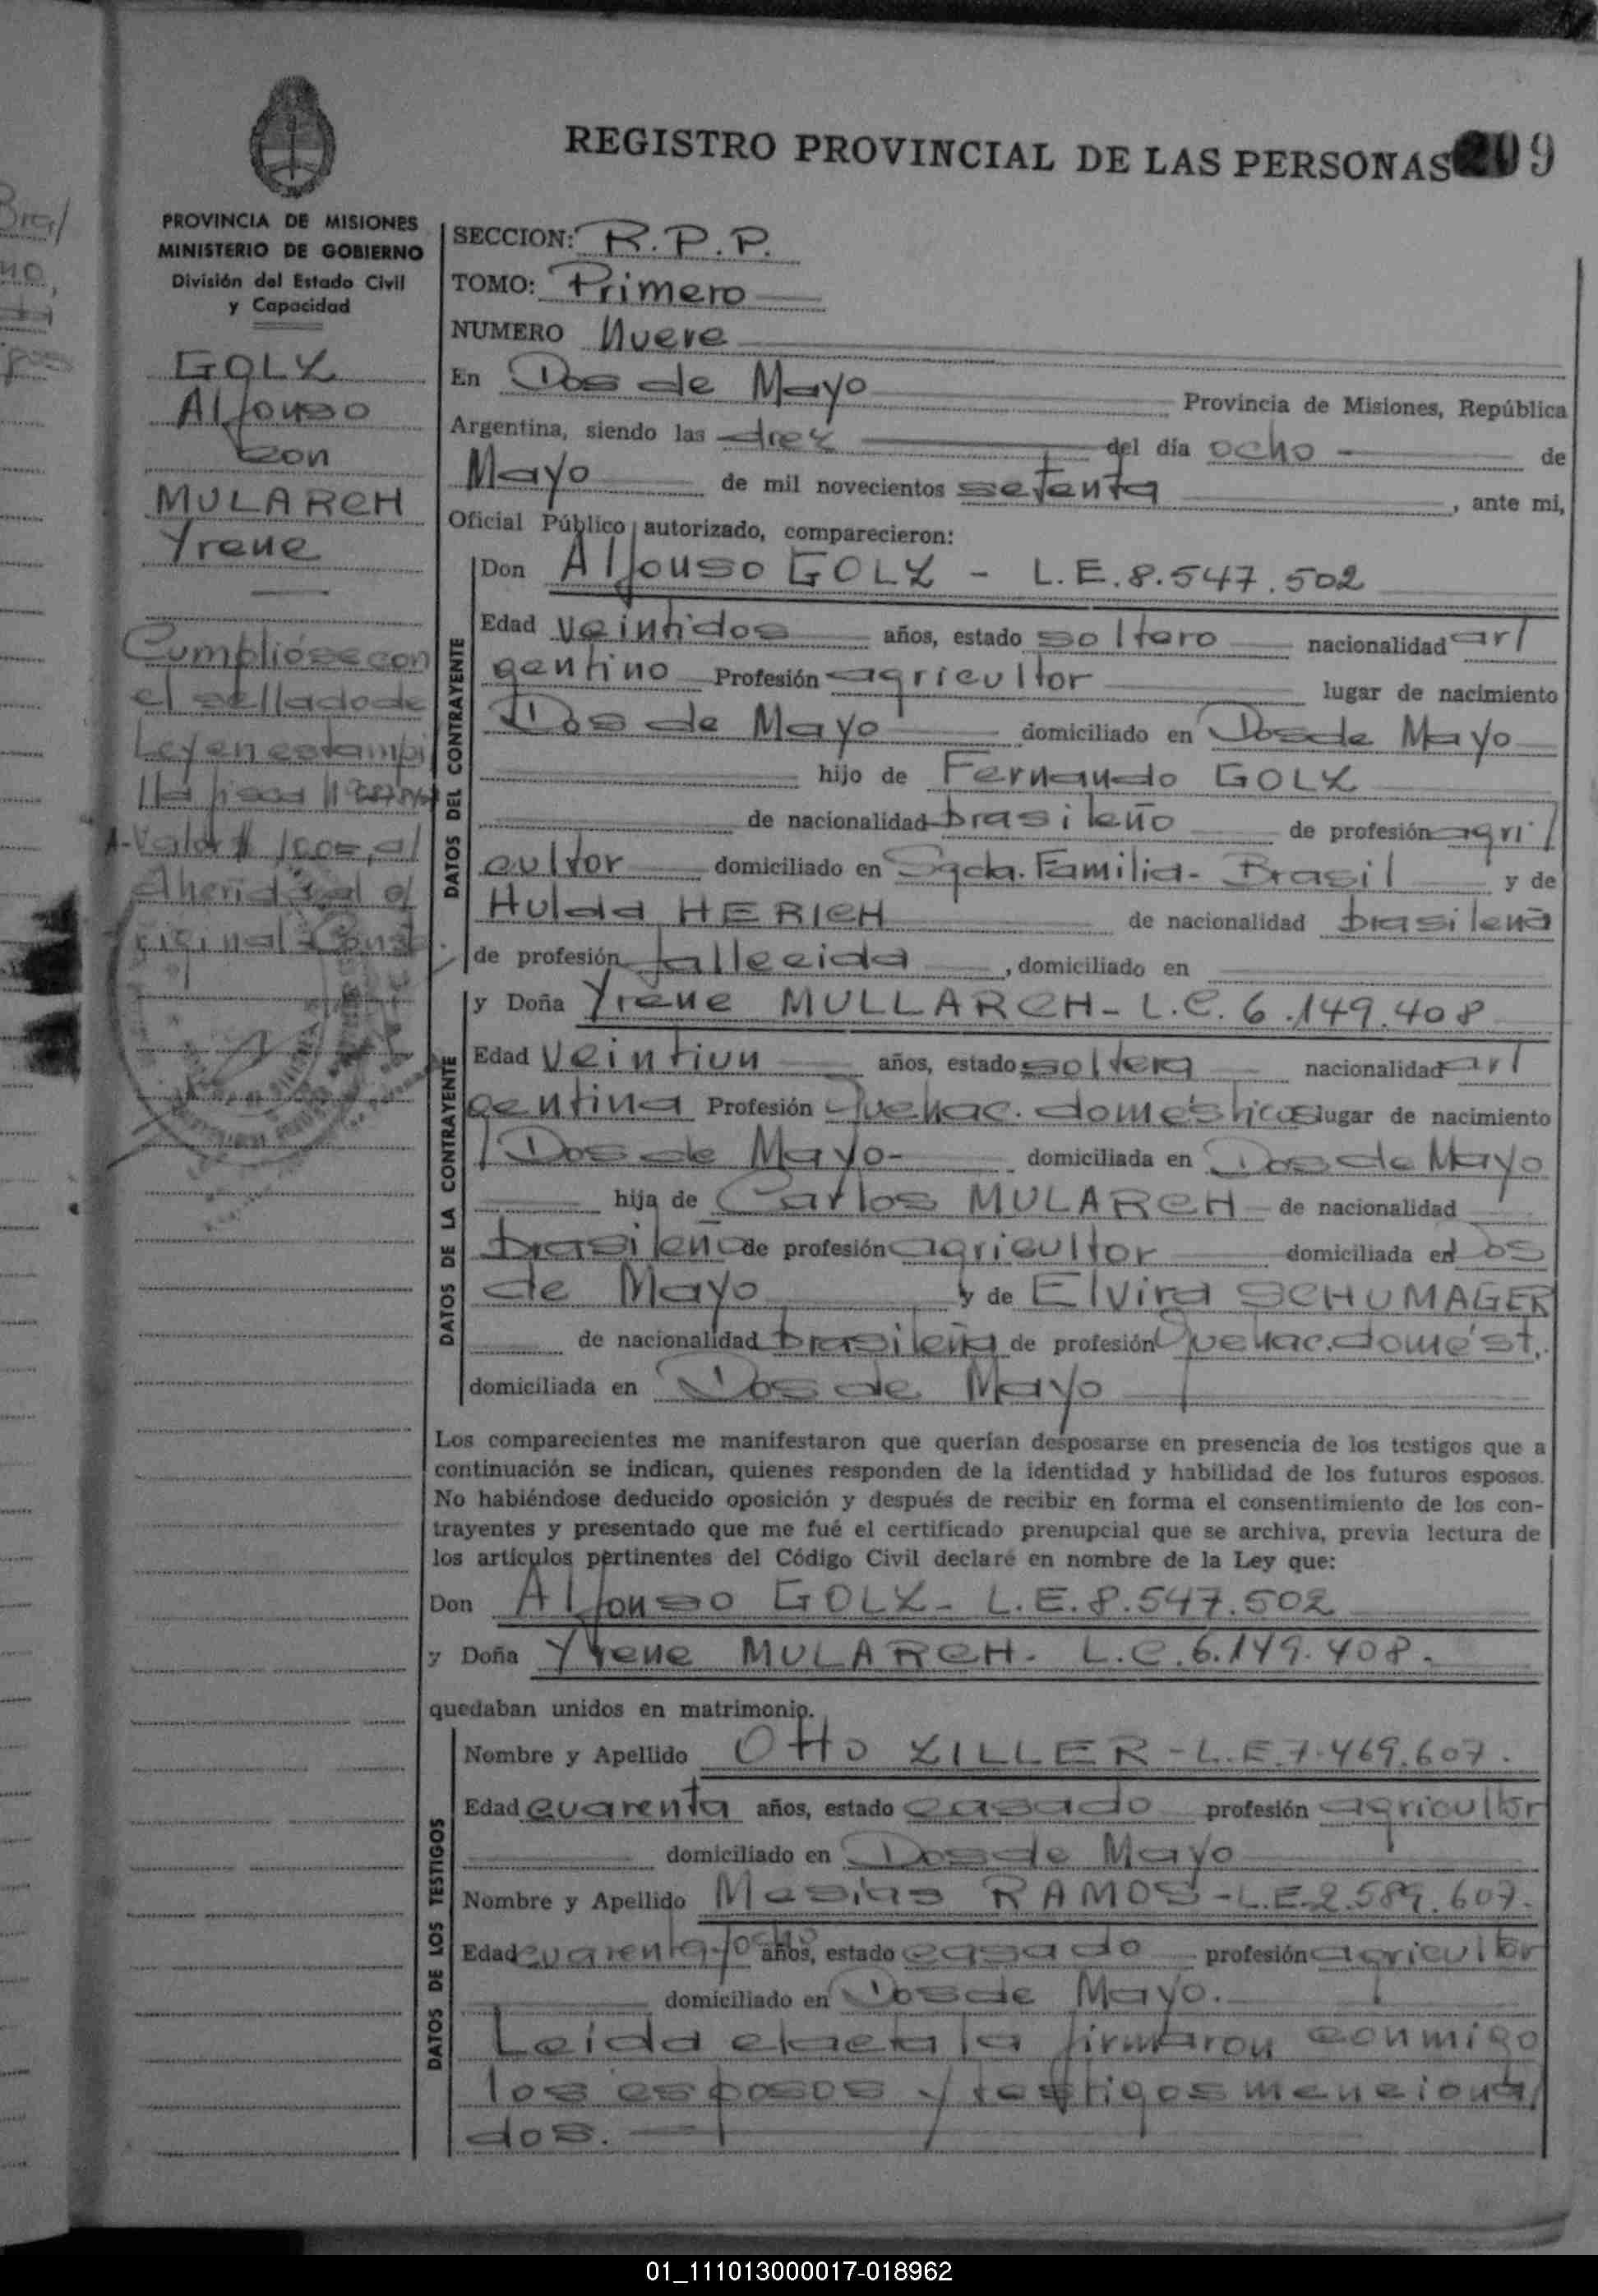 REGISTRO PROVINCIAL DE LAS PERSONAS 209
PROVINCIA DE MISIONES
MINISTERIO DE GOBIERNO
División del Estado Civil
y Capacidad
GOLY
Alfonso
con
MULARCH
Yrene
Cumplióse con
el sellado de
Ley en estampi
lla fiscal
A-Valor $ 1.00=, a/
dherida al o/
riginal.- Const
SECCION: R.P.P.
TOMO: Primero
NUMERO Nueve
En Dos de Mayo Provincia de Misiones, República
Argentina, siendo las diez del día ocho de
Mayo de mil novecientos setenta, ante mi,
Oficial Público autorizado, comparecieron:
DATOS DEL CONTRAYENTE
Don Alfonso GOLY - L.E.8.547.502
Edad veintidos años, estado soltero nacionalidad ar/
gentino Profesión agricultor lugar de nacimiento
Dos de Mayo domiciliado en Dos de Mayo
hijo de Fernando GOLY
de nacionalidad brasileño de profesión agri/
cultor domiciliado en Sgda. Familia - Brasil y de
Hulda HERICH de nacionalidad brasileña
de profesión fallecida, domiciliado en
DATOS DE LA CONTRAYENTE
y Doña Yrene MULLARCH - L.C. 6.149.408
Edad Veintiun años, estado soltera nacionalidad ar/
gentina Profesión Quehac. domésticos lugar de nacimiento
Dos de Mayo- domiciliada en Dos de Mayo
hija de Carlos MULARCH de nacionalidad
brasileño de profesión agricultor domiciliada en Dos
de Mayo y de Elvira SCHUMAGER
de nacionalidad brasileña de profesión Quehac. domést.
domiciliada en Dos de Mayo
Los comparecientes me manifestaron que querían desposarse en presencia de los testigos que a
continuación se indican, quienes responden de la identidad y habilidad de los futuros esposos.
No habiéndose deducido oposición y después de recibir en forma el consentimiento de los con-
trayentes y presentado que me fué el certificado prenupcial que se archiva, previa lectura de
los artículos pertinentes del Código Civil declaré en nombre de la Ley que:
Don Alfonso GOLY - L.E.8.547.502
y Doña Yrene MULARCH. L.C.6.149.408.
quedaban unidos en matrimonio.
DATOS DE LOS TESTIGOS
Nombre y Apellido Otto ZILLER - L.E.7.469.607.
Edad cuarenta años, estado casado profesión agricultor
domiciliado en Dos de Mayo
Nombre y Apellido Mesias RAMOS - L.E.2.589.607.
Edad cuarenta y ocho años, estado casado profesión agricultor
domiciliado en Dos de Mayo.
Leida el acta la firmaron conmigo
los esposos y testigos menciona/
dos.
01_111013000017-018962